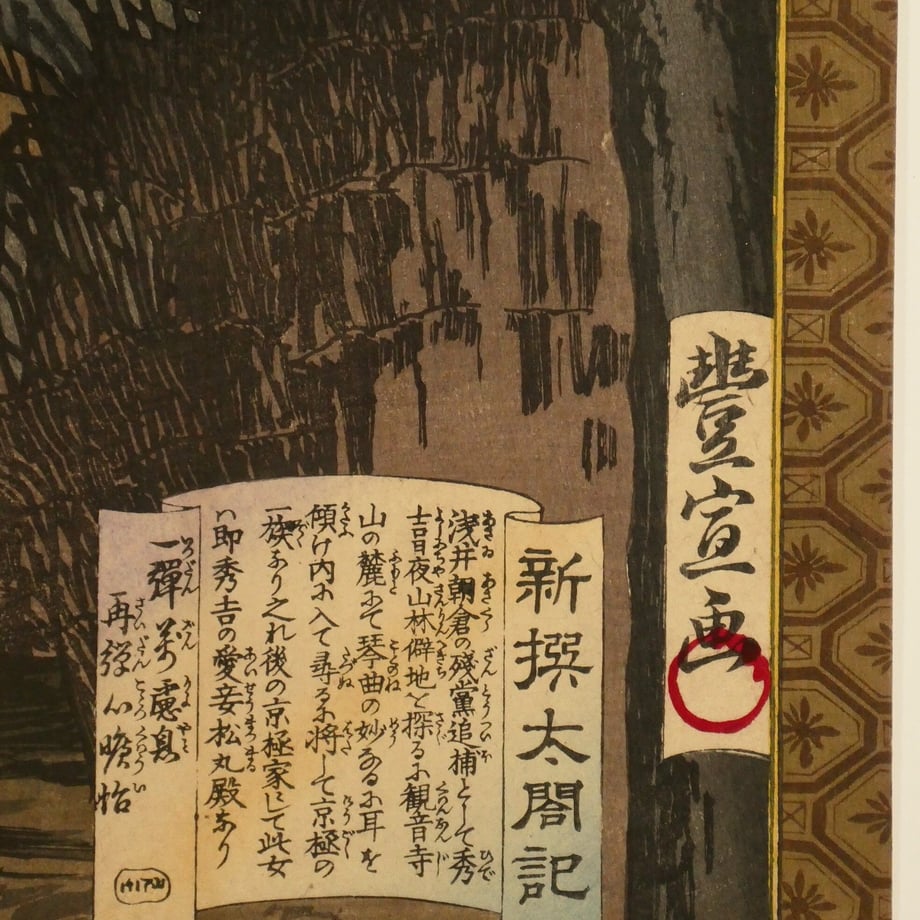 豐宣画
新撰太閤記
浅井朝倉の残黨追捕として秀
吉日夜山林僻地を探るに観音寺
山の麓にて琴曲の妙なるに耳を
傾け内に入て尋るに将して京極の
一族なり之れ後の京極家にて此女
ハ即秀吉の愛妾松丸殿なり
一彈万慮息
再弾心曠怡